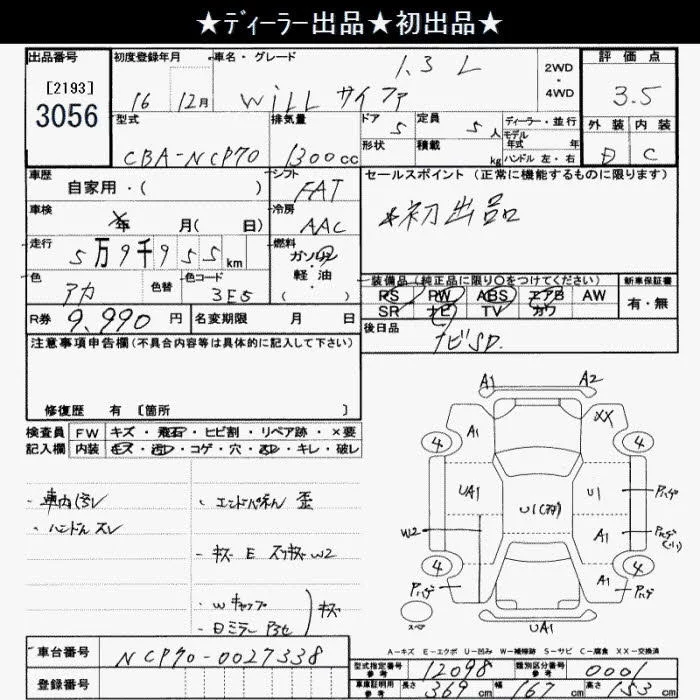 ★ディーラー出品★初出品★
出品番号 初度登録年月 車名・グレード 2WD・4WD 評価点
[2193]
3056
16 12月 WiLL サイファ 1.3 L 3.5
型式 排気量 ドア 5 定員 5 人 ディーラー・並行 外装 内装
モデル年式 年
CBA-NCP70 1300cc 形状 積載 kg ハンドル 左・右 D C
車歴 自家用・( ) シフト FAT セールスポイント (正常に機能するものに限ります)
車検 年 月( 日) 冷房 AAC *初出品
走行 5万9千955km 燃料 ガソリン・軽油 ( )
色 アカ 色替 色コード 3E5
装備品(純正品に限り○をつけてください) 新車保証書
PS PW ABS エアB AW 有・無
SR ナビ TV カワ
R券 9,990 円 名変期限 月 日 後日品
ナビSD.
注意事項申告欄(不具合内容等は具体的に記入して下さい)
修復歴 有 [箇所 ]
検査員 FW キズ・飛石・ヒビ割・リペア跡・×要
記入欄 内装 キズ・汚レ・コゲ・穴・キレ・破レ
A1 A2
A1 XX
4 4
UA1 U1 Pハゲ
W2 A1 Pハゲ(小)
4 4
Pハゲ A1 Pハゲ
スペア
UA1
・車内汚レ
・ハンドルスレ
・エンドパネル 歪
・キズ E スリキズ W2
・Wキャップ キズ
A-キズ E-エクボ U-凹み W-補修跡 S-サビ C-腐食 XX-交換済
車台番号 NCP70-0027338
型式指定番号 参考 12098 類別区分番号 参考 0001
登録番号
車庫証明用 参考 長さ 369 cm 幅 167 cm 高さ 153 cm